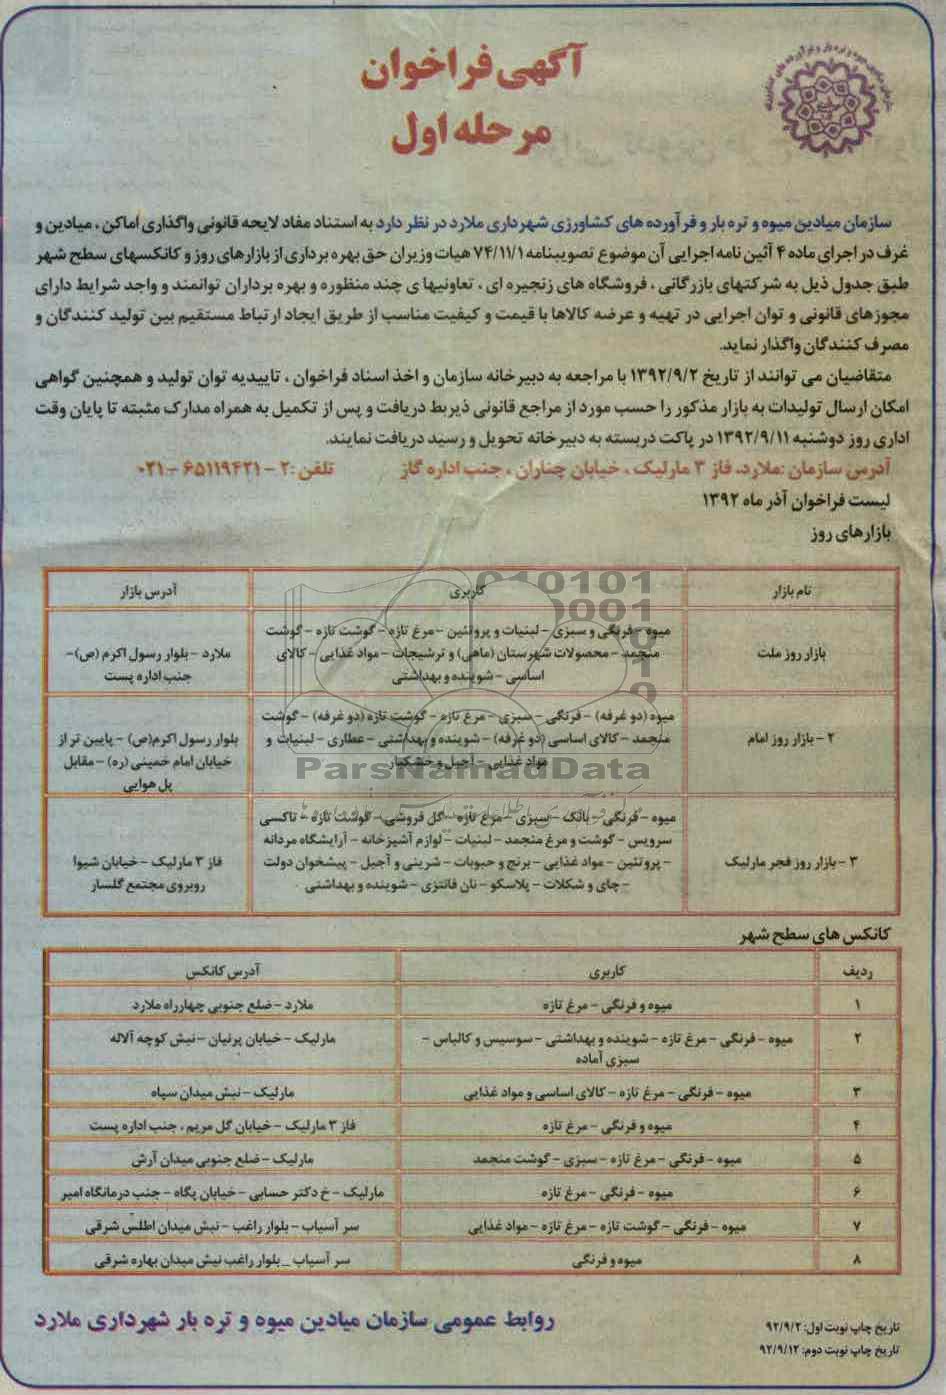 سازمان میادین میوه و تره بار و فرآورده های کشاورزی
آگهی فراخوان
مرحله اول
سازمان میادین میوه و تره بار و فرآورده های کشاورزی شهرداری ملارد در نظر دارد به استناد مفاد لایحه قانونی واگذاری اماکن ، میادین و
غرف در اجرای ماده ۴ آئین نامه اجرایی آن موضوع تصویبنامه ۷۴/۱۱/۱ هیات وزیران حق بهره برداری از بازارهای روز و کانکسهای سطح شهر
طبق جدول ذیل به شرکتهای بازرگانی ، فروشگاه های زنجیره ای ، تعاونیها ی چند منظوره و بهره برداران توانمند و واجد شرایط دارای
مجوزهای قانونی و توان اجرایی در تهیه و عرضه کالاها با قیمت و کیفیت مناسب از طریق ایجاد ارتباط مستقیم بین تولید کنندگان و
مصرف کنندگان واگذار نماید.
متقاضیان می توانند از تاریخ ۱۳۹۲/۹/۲ با مراجعه به دبیرخانه سازمان و اخذ اسناد فراخوان ، تاییدیه توان تولید و همچنین گواهی
امکان ارسال تولیدات به بازار مذکور را حسب مورد از مراجع قانونی ذیربط دریافت و پس از تکمیل به همراه مدارک مثبته تا پایان وقت
اداری روز دوشنبه ۱۳۹۲/۹/۱۱ در پاکت دربسته به دبیرخانه تحویل و رسید دریافت نمایند.
آدرس سازمان :ملارد، فاز ۳ مارلیک ، خیابان چناران ، جنب اداره گاز تلفن :۲ - ۶۵۱۱۹۴۲۱ - ۰۲۱
لیست فراخوان آذر ماه ۱۳۹۲
بازارهای روز
نام بازار کاربری آدرس بازار
بازار روز ملت
میوه - فرنگی و سبزی - لبنیات و پروتئین - مرغ تازه - گوشت تازه - گوشت
منجمد - محصولات شهرستان (ماهی) و ترشیجات - مواد غذایی - کالای
اساسی - شوینده و بهداشتی
ملارد - بلوار رسول اکرم (ص)-
جنب اداره پست
۲ - بازار روز امام
میوه (دو غرفه) - فرنگی - سبزی - مرغ تازه - گوشت تازه (دو غرفه) - گوشت
منجمد - کالای اساسی (دو غرفه) - شوینده و بهداشتی - عطاری - لبنیات و
مواد غذایی - آجیل و خشکبار
بلوار رسول اکرم(ص) - پایین تر از
خیابان امام خمینی (ره) - مقابل
پل هوایی
۳ - بازار روز فجر مارلیک
میوه - فرنگی - بانک - سبزی - مرغ تازه - گل فروشی - گوشت تازه - تاکسی
سرویس - گوشت و مرغ منجمد - لبنیات - لوازم آشپزخانه - آرایشگاه مردانه
- پروتئین - مواد غذایی - برنج و حبوبات - شرینی و آجیل - پیشخوان دولت
- چای و شکلات - پلاسکو - نان فانتزی - شوینده و بهداشتی
فاز ۳ مارلیک - خیابان شیوا
روبروی مجتمع گلسار
010101
0001
ParsNamadData
کانکس های سطح شهر
ردیف کاربری آدرس کانکس
۱ میوه و فرنگی - مرغ تازه ملارد - ضلع جنوبی چهارراه ملارد
۲ میوه - فرنگی - مرغ تازه - شوینده و بهداشتی - سوسیس و کالباس - مارلیک - خیابان پرنیان - نبش کوچه آلاله
سبزی آماده
۳ میوه - فرنگی - مرغ تازه - کالای اساسی و مواد غذایی مارلیک - نبش میدان سپاه
۴ میوه و فرنگی - مرغ تازه فاز ۳ مارلیک - خیابان گل مریم ، جنب اداره پست
۵ میوه - فرنگی - مرغ تازه - سبزی - گوشت منجمد مارلیک - ضلع جنوبی میدان آرش
۶ میوه - فرنگی - مرغ تازه مارلیک - خ دکتر حسابی - خیابان پگاه - جنب درمانگاه امیر
۷ میوه - فرنگی - گوشت تازه - مرغ تازه - مواد غذایی سر آسیاب - بلوار راغب - نبش میدان اطلس شرقی
۸ میوه و فرنگی سر آسیاب _ بلوار راغب نبش میدان بهاره شرقی
روابط عمومی سازمان میادین میوه و تره بار شهرداری ملارد
تاریخ چاپ نوبت اول: ۹۲/۹/۲
تاریخ چاپ نوبت دوم: ۹۲/۹/۱۲